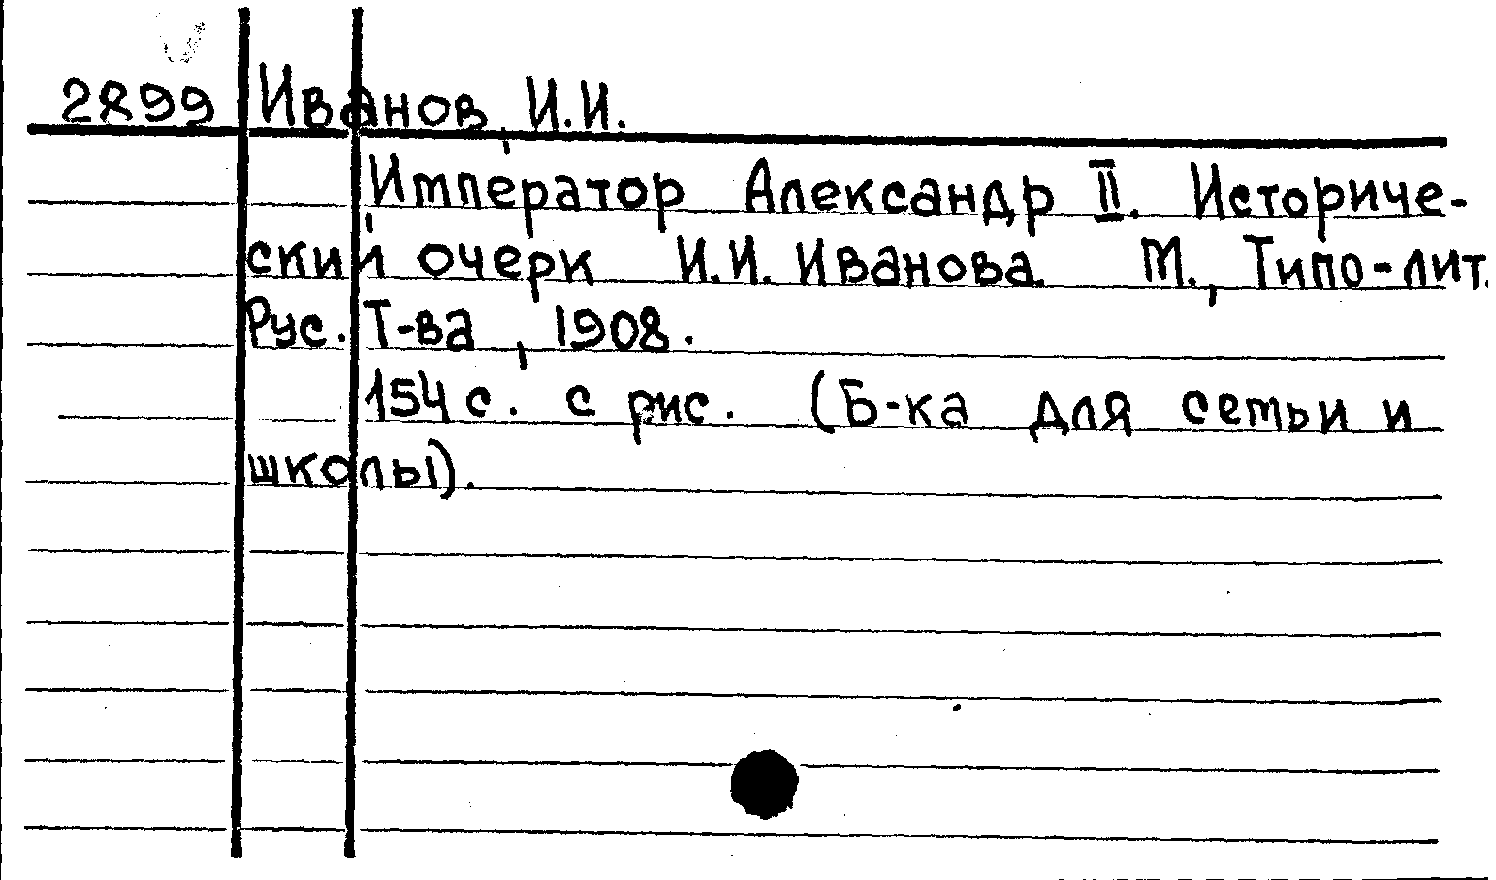 2899 Иванов, И.И.
Император Александр II. Историче-
ский очерк И.И. Иванова. М., Типо-лит.
Рус. Т-ва, 1908.
154 с. с рис. (Б-ка для семьи и
школы).